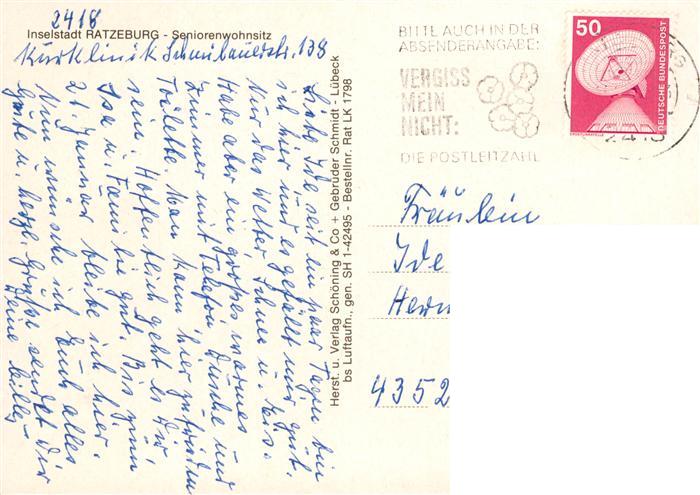 2418
Inselstadt RATZEBURG - Seniorenwohnsitz
Kurklinik Schmilauerstr. 138
Liebe Ide seit ein paar Tagen bin
ich hier und es gefällt mir gut.
Nur das Wetter Schnee u. Eis.
Habe aber ein großes warmes
Zimmer mit Telefon Dusche und
Toilette. Man kann hier zufrieden
sein. Hoffentlich geht es Dir
Isa u. Familie gut. Bis zum
21. Januar bleibe ich hier.
Nun wünsche ich Euch alles
Gute u. herzl. Grüße sendet Dir
Deine
Herst. u. Verlag Schöning & Co + Gebrüder Schmidt - Lübeck
bs Luftaufn., gen. SH 1-42495 - Bestellnr. Rat LK 1798
BITTE AUCH IN DER
ABSENDERANGABE:
VERGISS
MEIN
NICHT:
DIE POSTLEITZAHL
50
DEUTSCHE BUNDESPOST
2418
Fräulein
Ide
Herm
4352